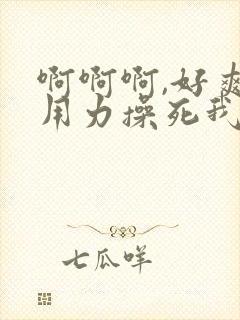 啊啊啊,好爽
用力操死我
七瓜咩